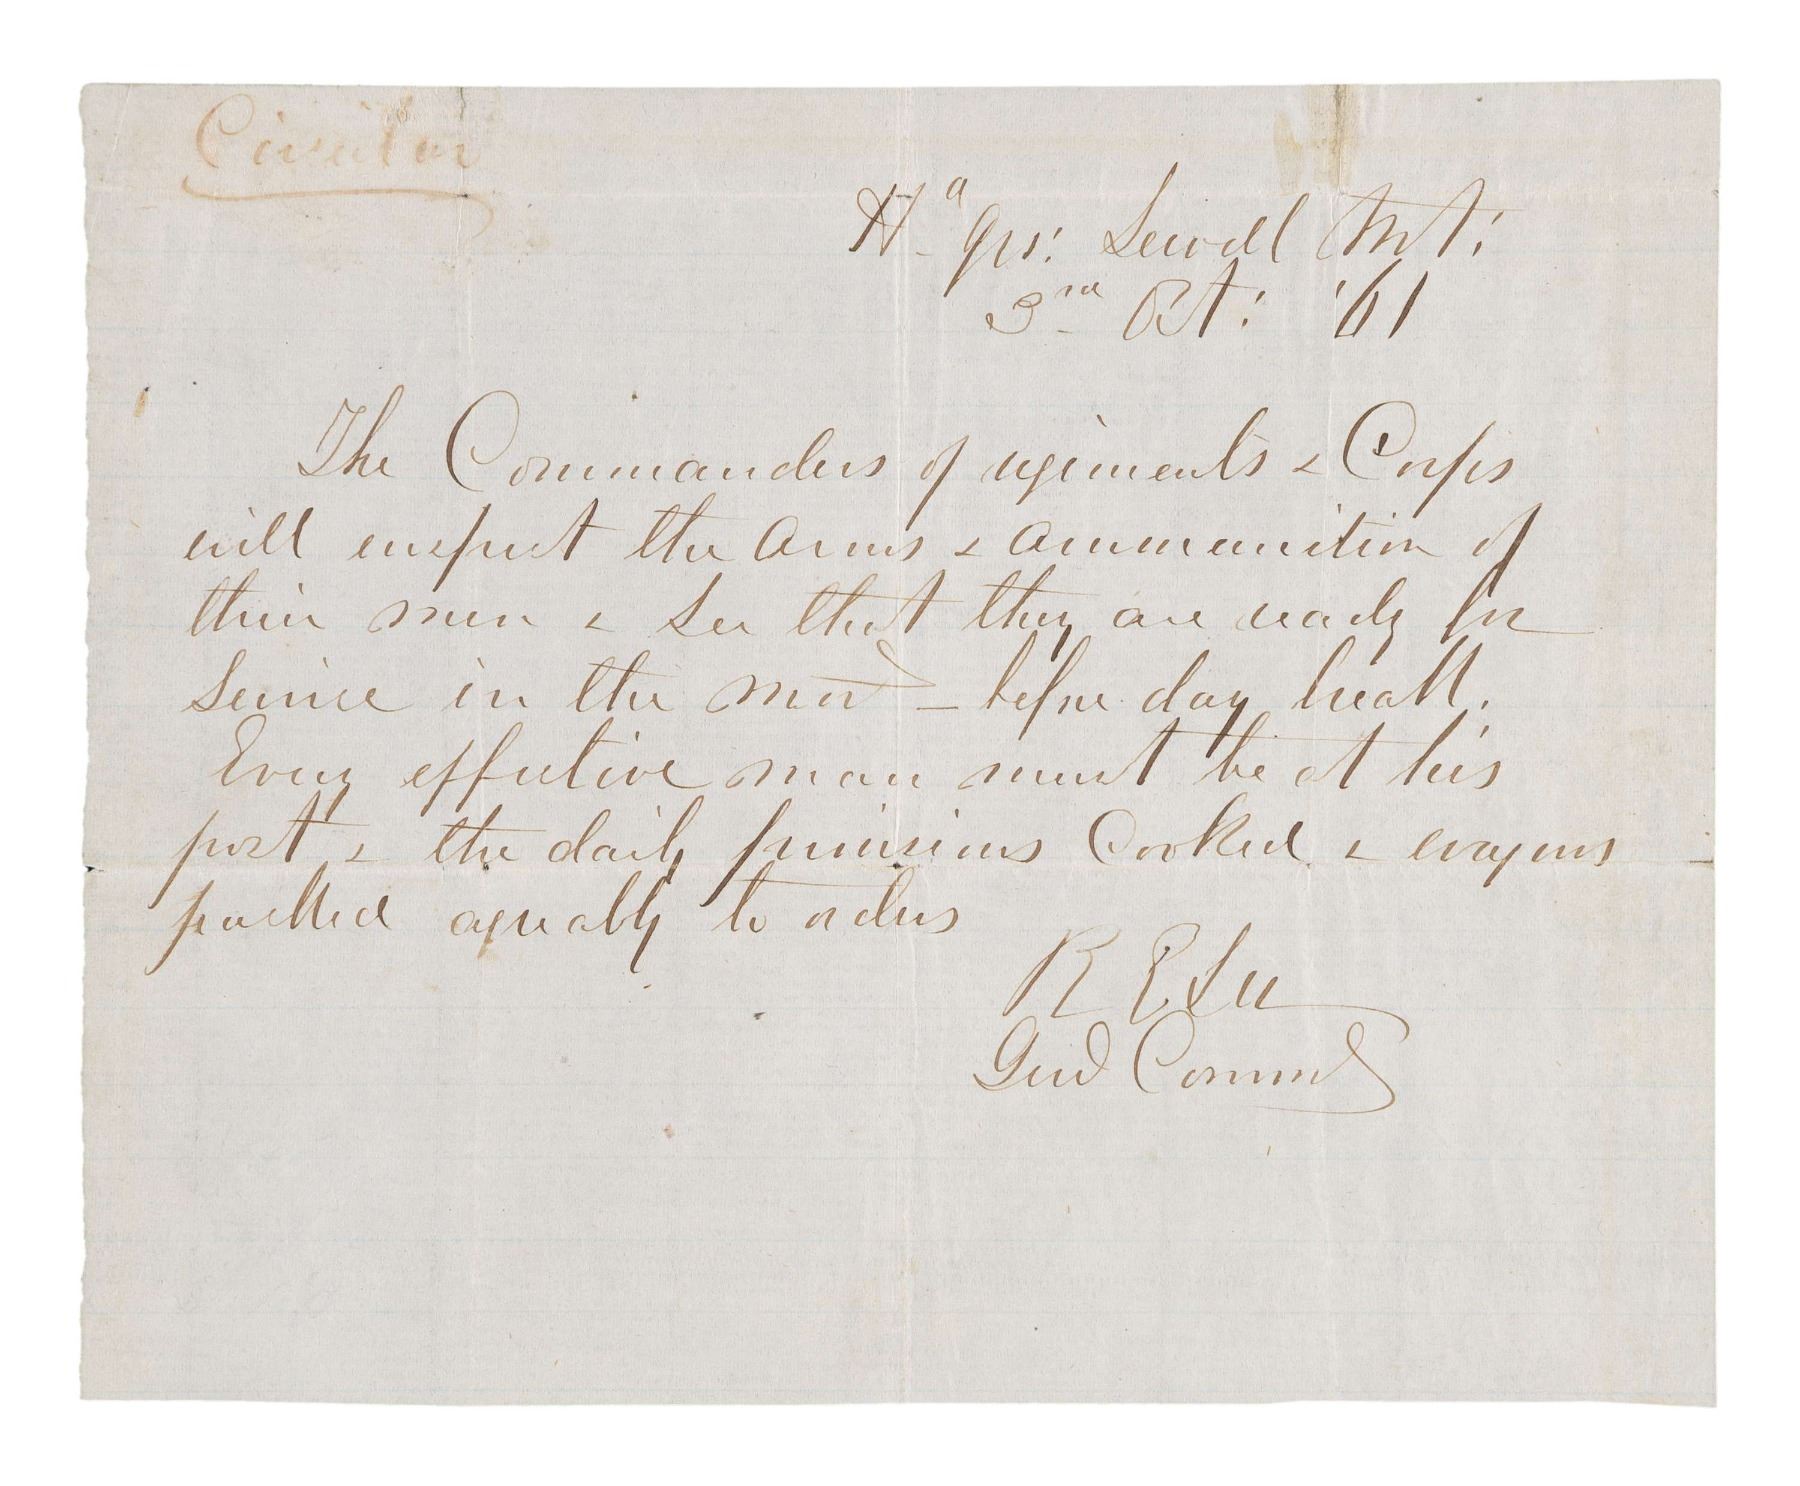 Circular
Hd Qrs: Sewell Mt:
3rd Oct: '61
The Commanders of regiments & Corps
will inspect the arms & ammunition of
their men & See that they are ready for
Service in the morg — before day break.
Every effective man must be at his
post & the daily provisions Cooked & wagons
packed agreably to orders
R E Lee
Genl Commdg